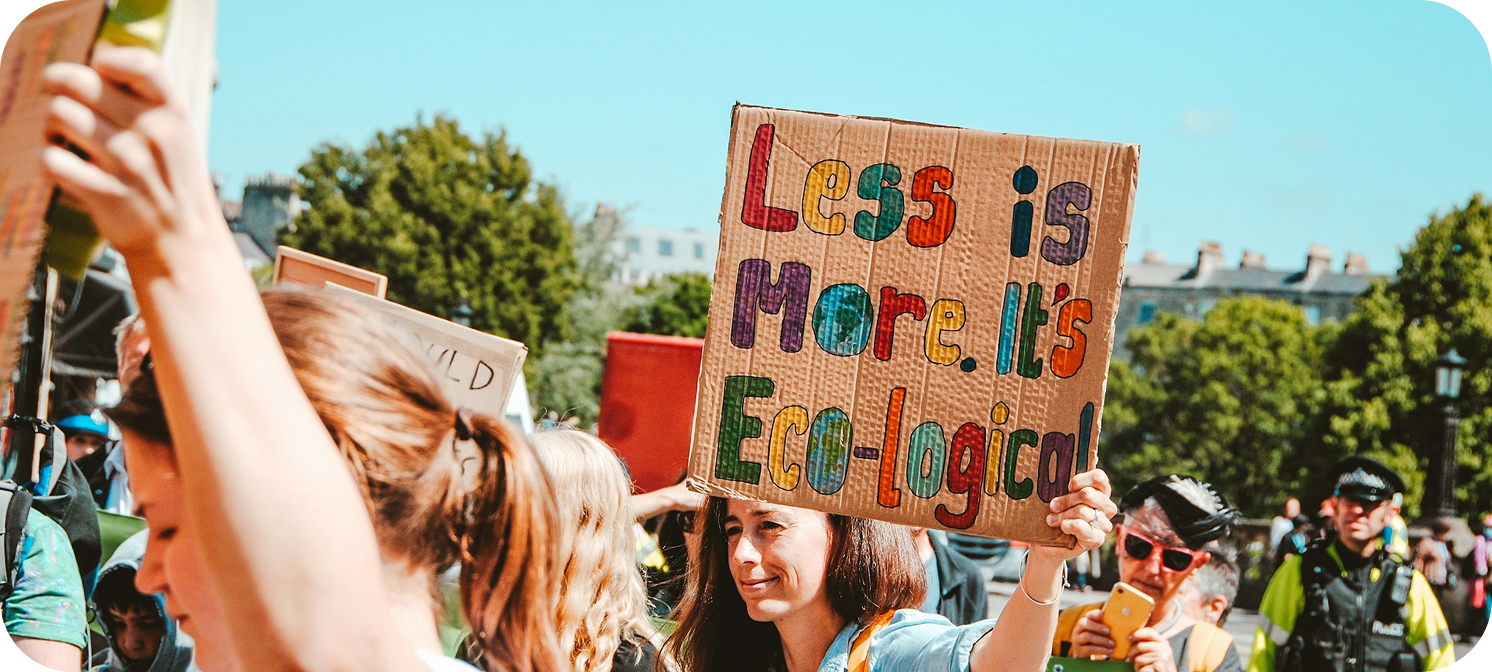 Less is
More. It's
Eco-logical
ULD
POLICE